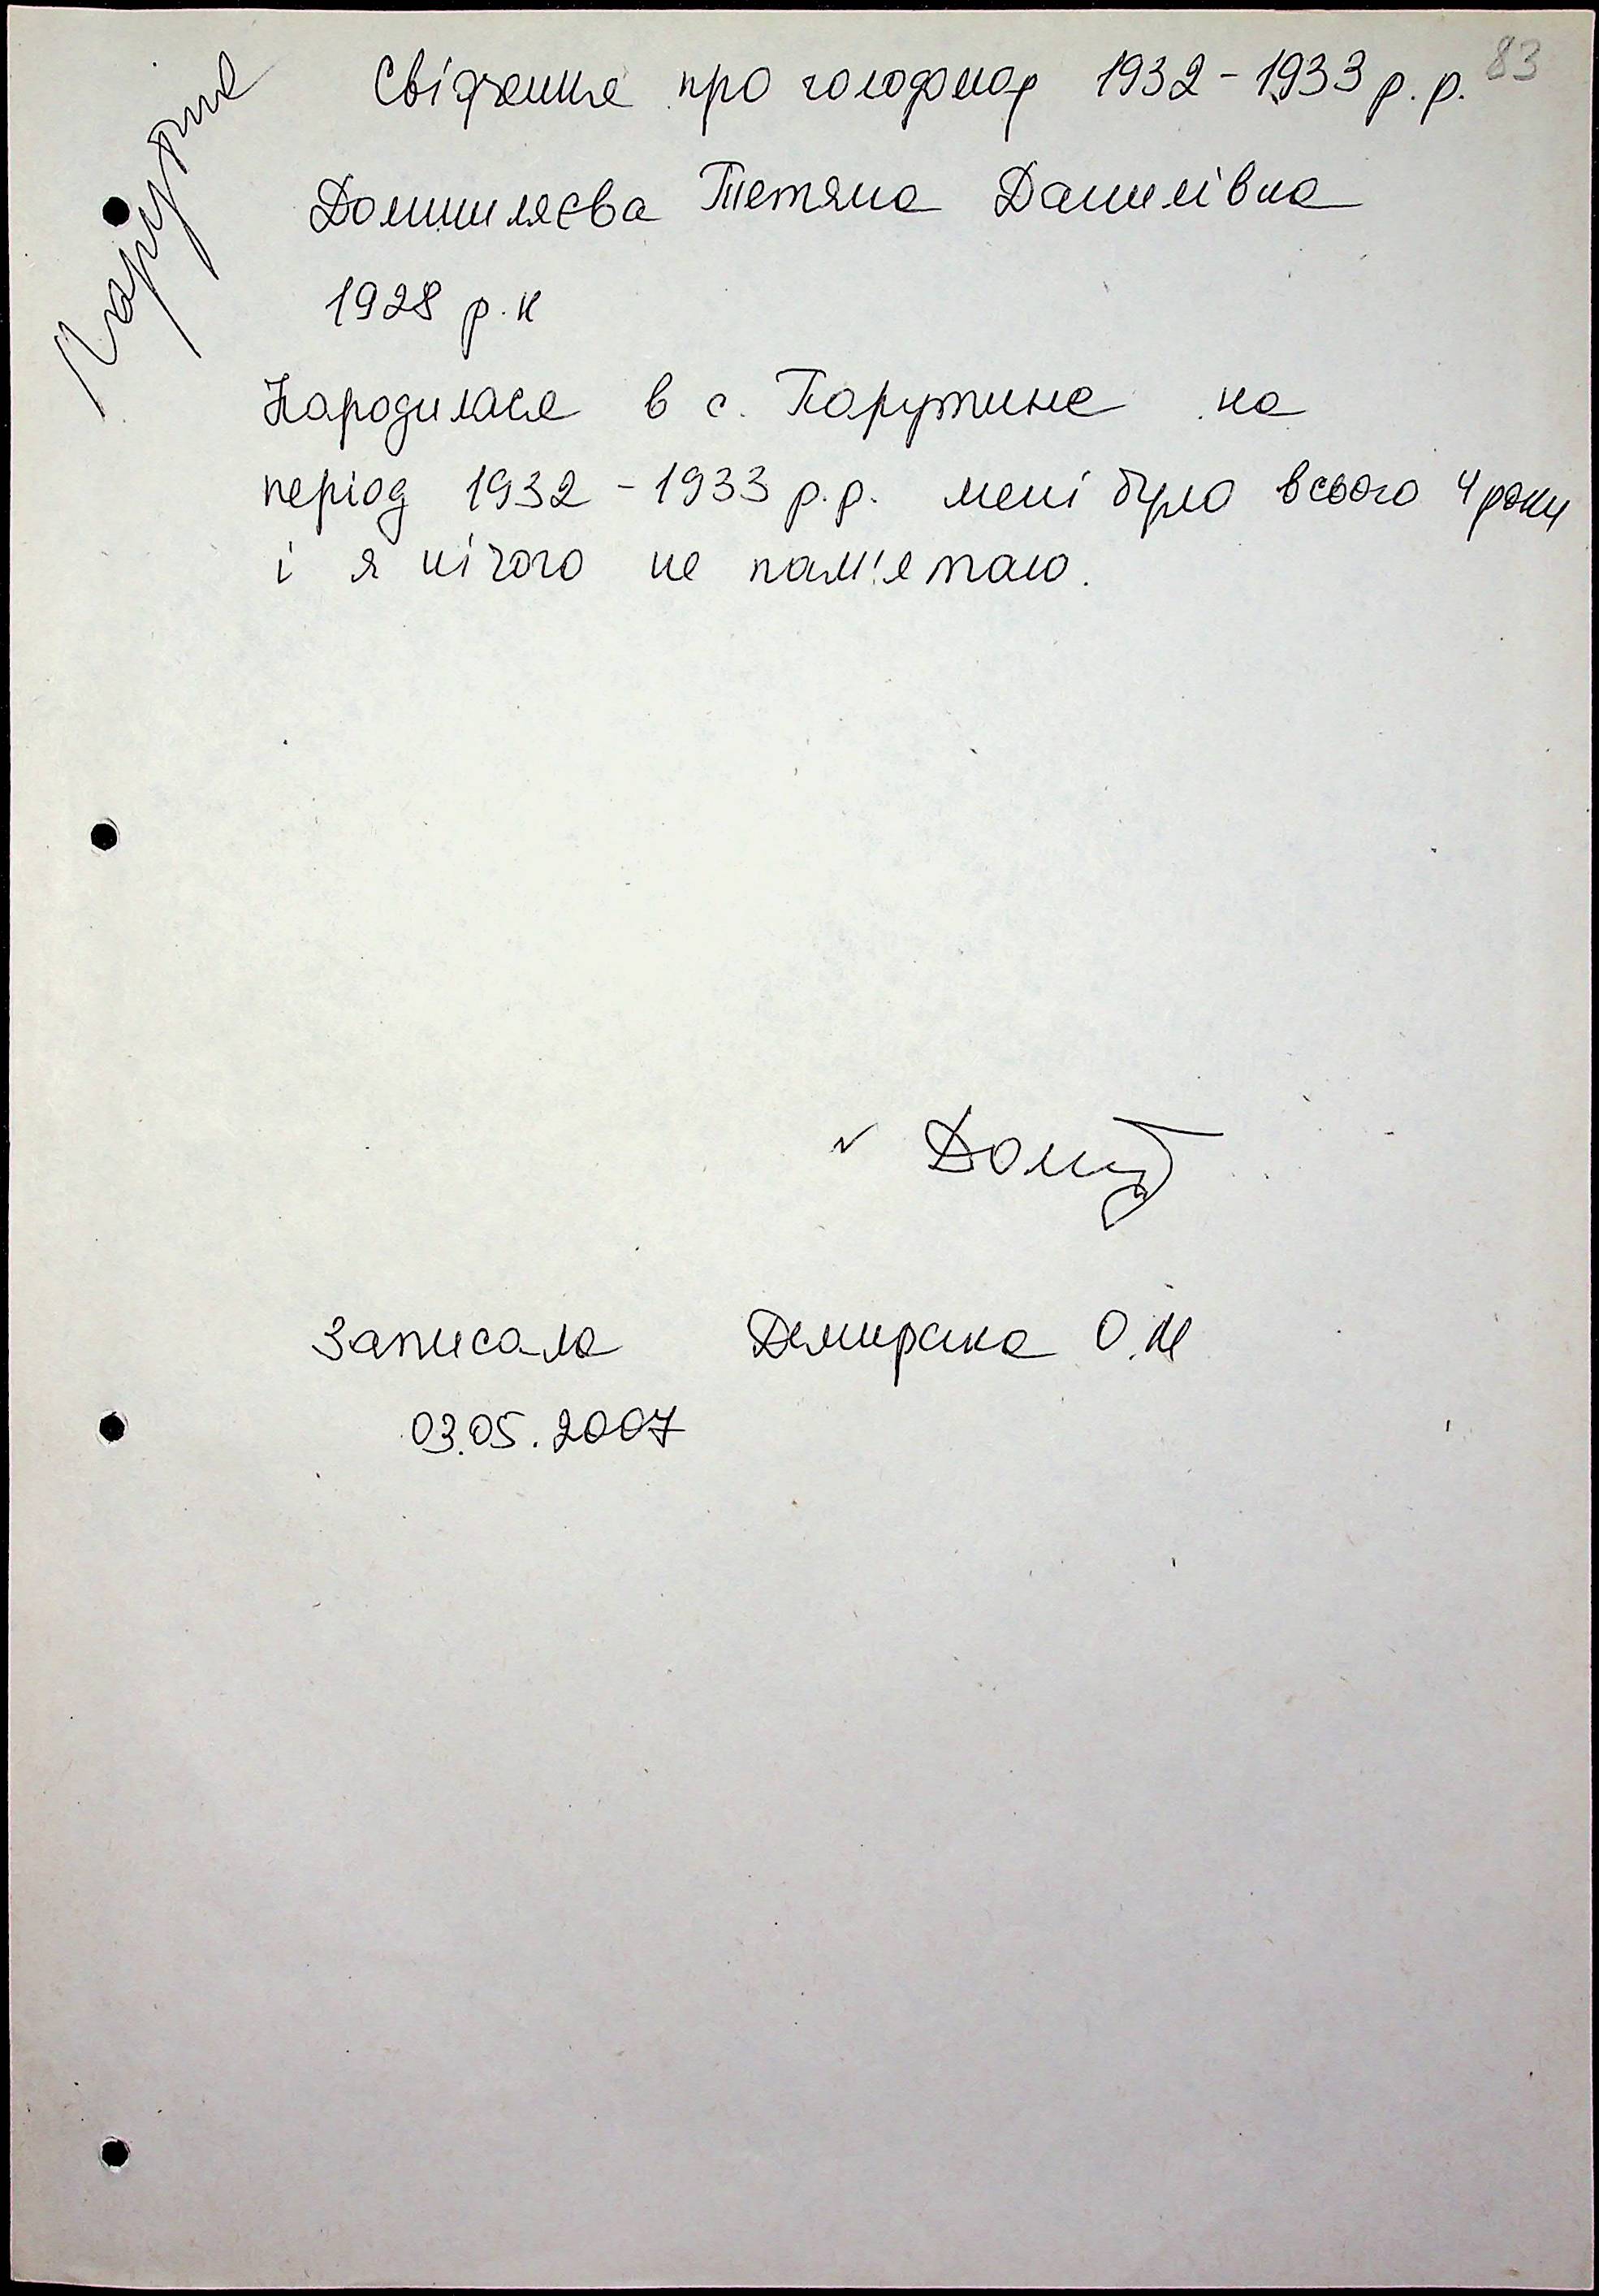 83
Парутине
Свідчення про голодомор 1932-1933 р.р.
Тетяна Данилівна
1928 р.н
Народилася в с. Парутине на
період 1932-1933 р.р. мені було всього 4 роки
і я нічого не пам'ятаю.
Записала О.М
03.05.2007